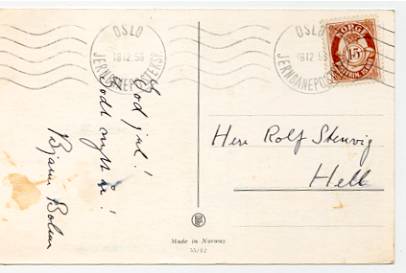 OSLO
18 12 53
JERNBANEPOSTEKSP
OSLO
18 12 53
JERNBANEPOST
NORGE
15
God jul!
Godt nytt år!
Bjarne
Herr Rolf Stenvig
Hell
Made in Norway